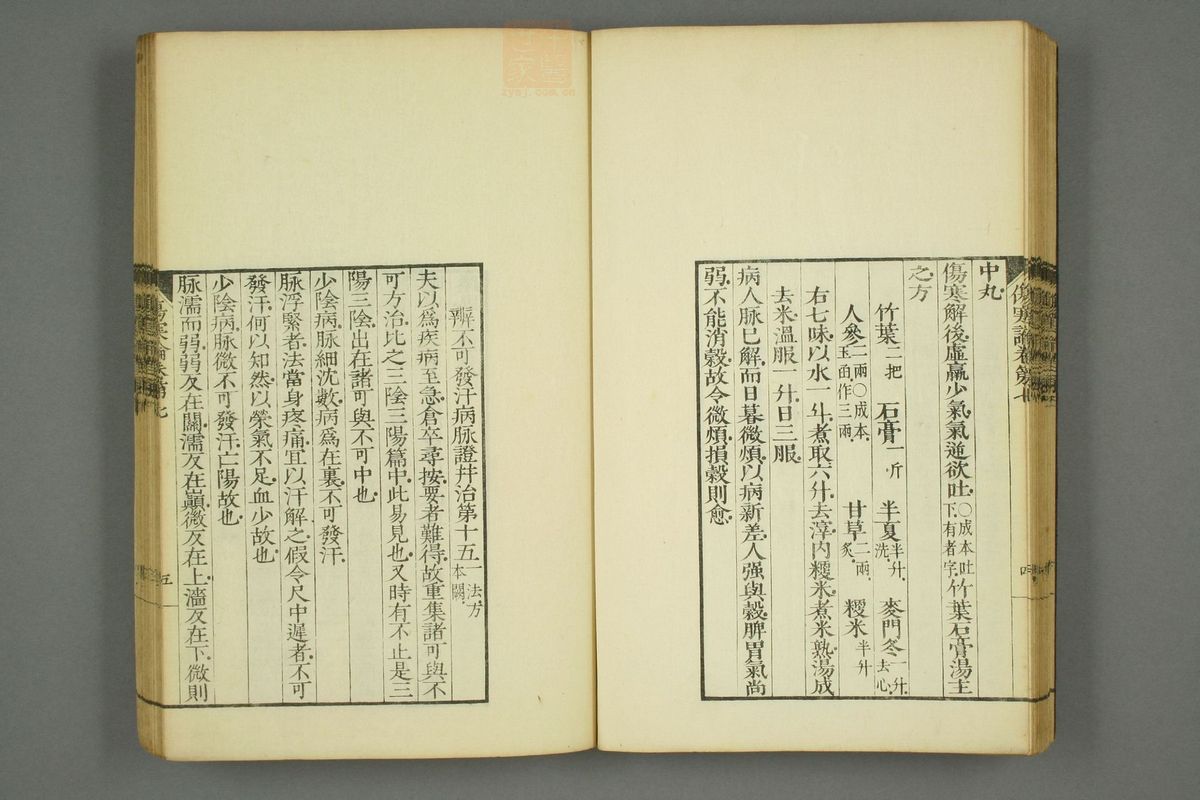 傷寒論卷第七
四
中丸
傷寒解後虛羸少氣氣逆欲吐○成本吐下有者字竹葉石膏湯主
之方
竹葉二把 石膏一斤 半夏半升洗 麥門冬一升去心
人參二兩○成本玉函作三兩 甘草二兩炙 粳米半升
右七味以水一斗煮取六升去滓內粳米煮米熟湯成
去米溫服一升日三服
病人脉已解而日暮微煩以病新差人强與穀脾胃氣尚
弱不能消穀故令微煩損穀則愈
辨不可發汗病脉證幷治第十五一法方本闕
夫以爲疾病至急倉卒尋按要者難得故重集諸可與不
可方治比之三陰三陽篇中此易見也又時有不止是三
陽三陰出在諸可與不可中也
少陰病脉細沈數病爲在裏不可發汗
脉浮緊者法當身疼痛宜以汗解之假令尺中遲者不可
發汗何以知然以榮氣不足血少故也
少陰病脉微不可發汗亡陽故也
脉濡而弱弱反在關濡反在巓微反在上濇反在下微則
傷寒論卷第七
五
zysj.com.cn